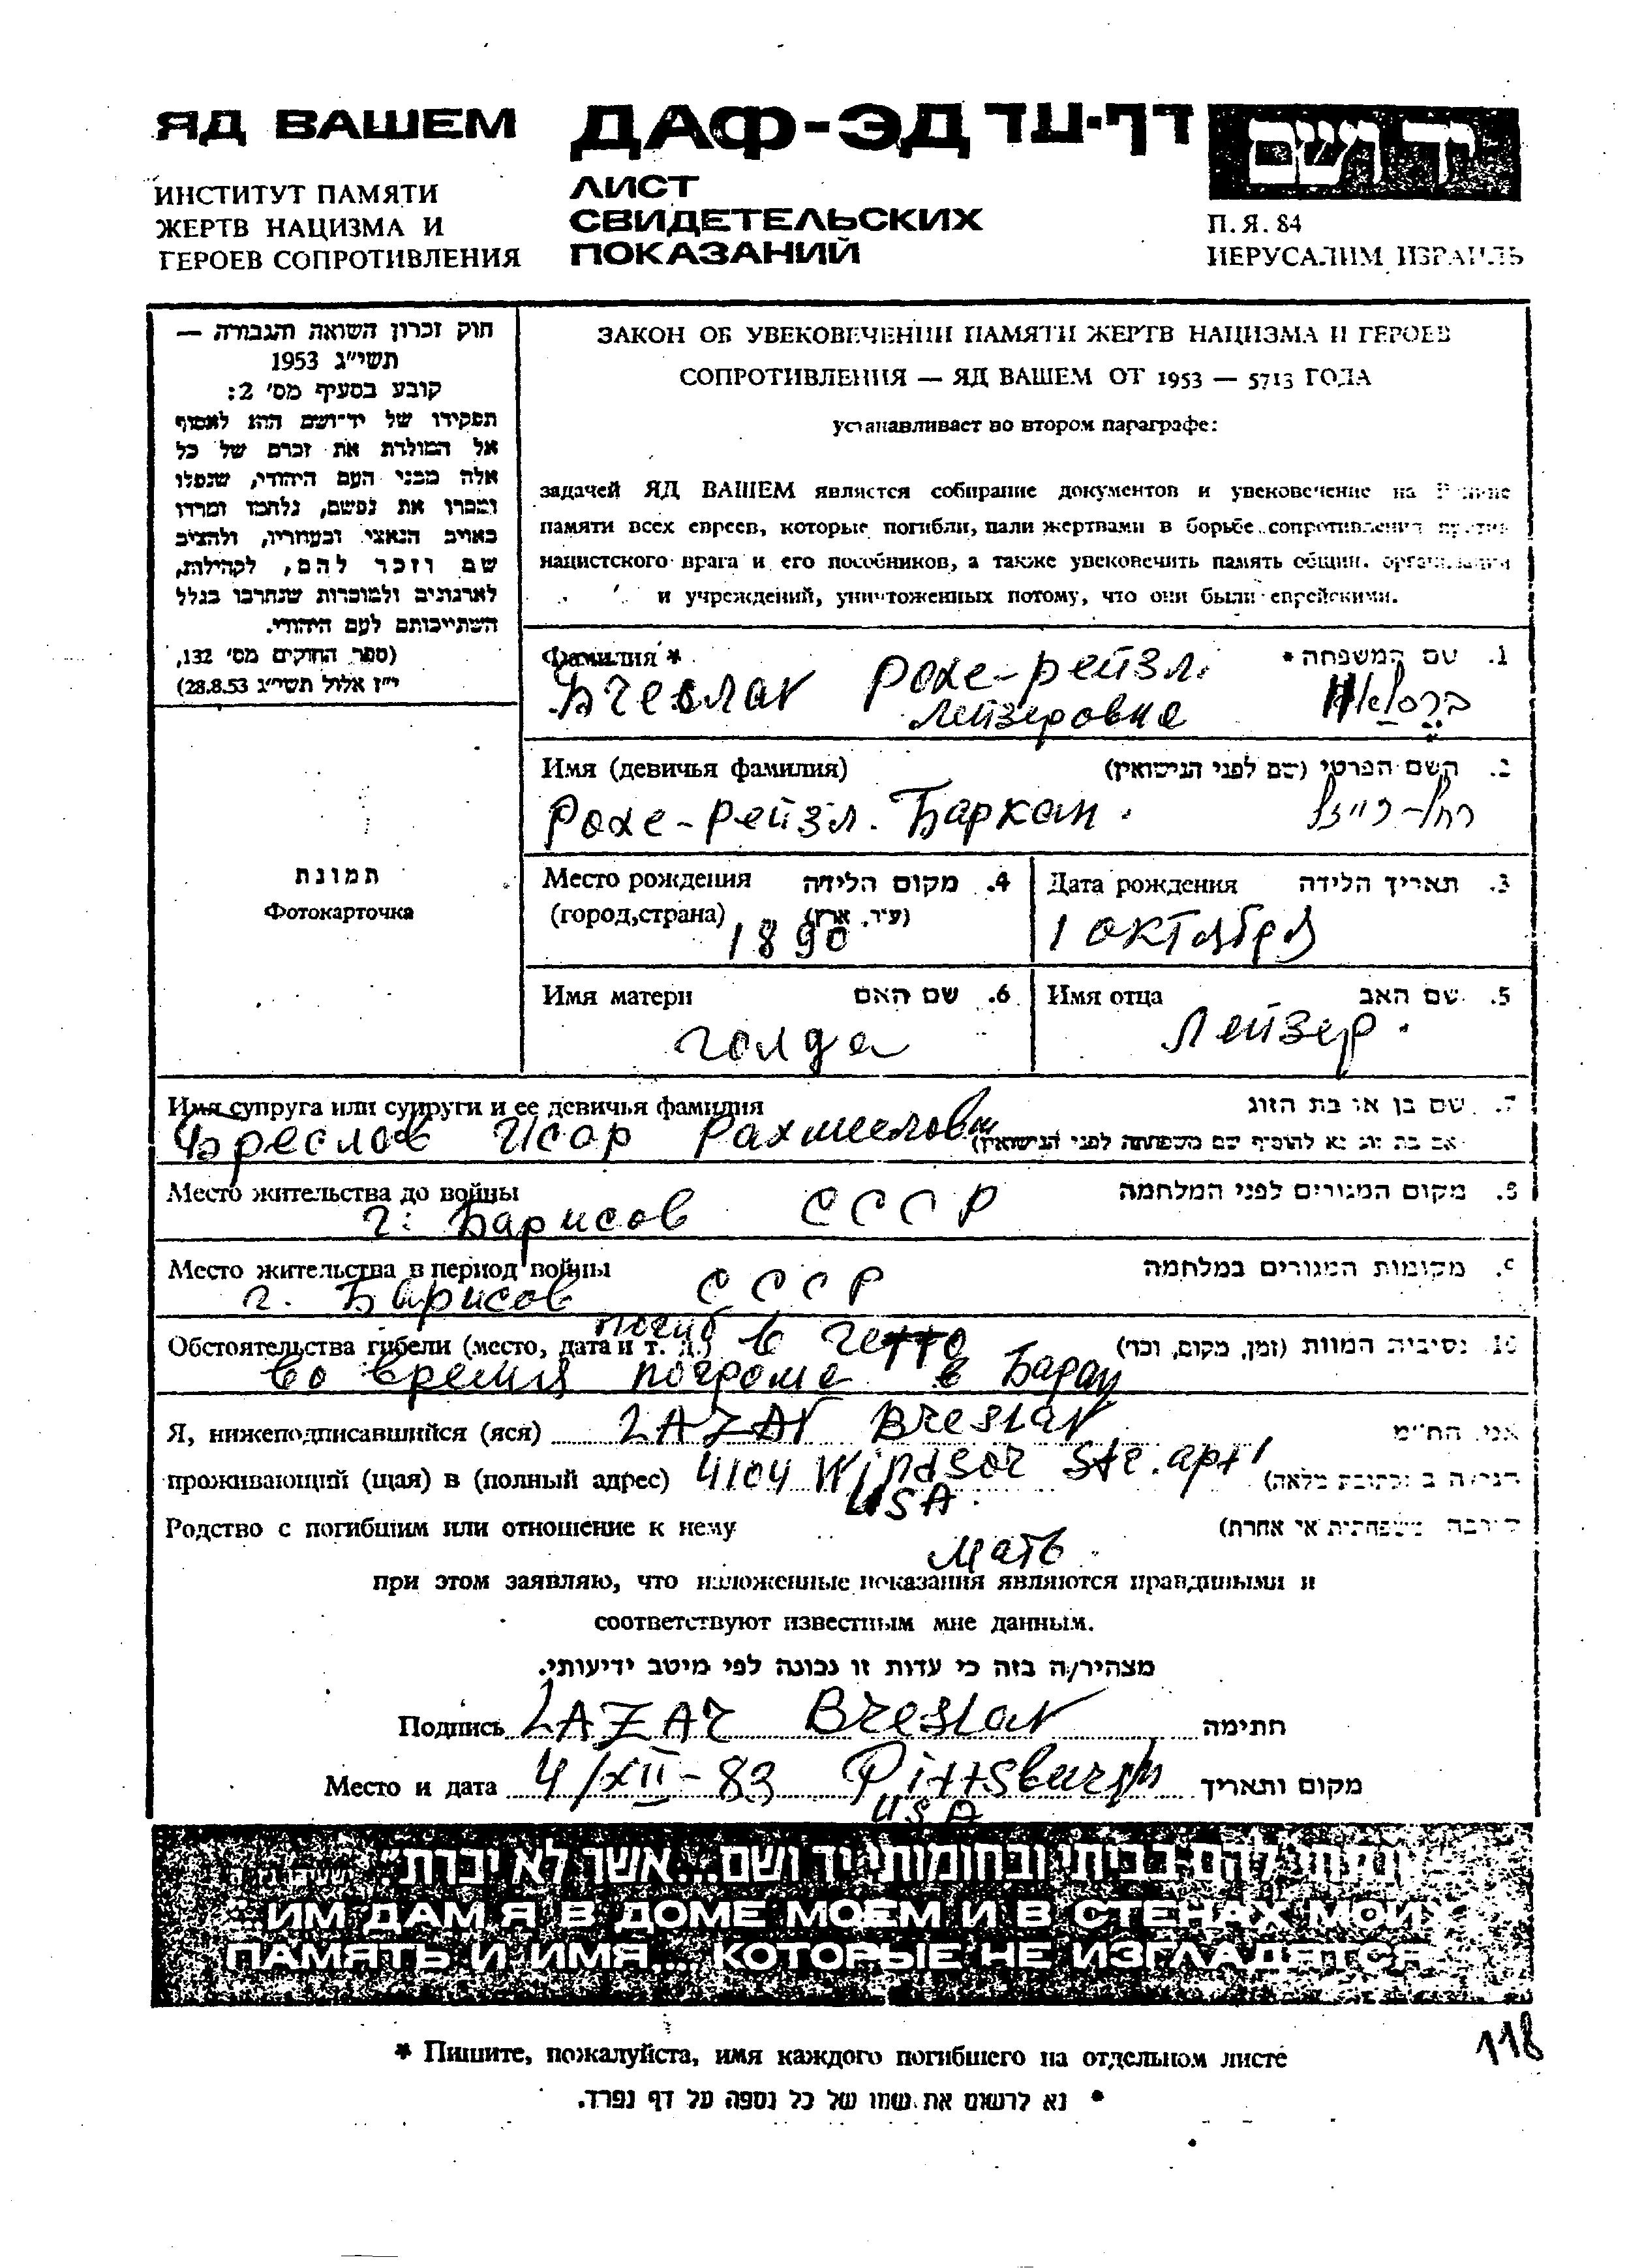 ЯД ВАШЕМ
ИНСТИТУТ ПАМЯТИ
ЖЕРТВ НАЦИЗМА И
ГЕРОЕВ СОПРОТИВЛЕНИЯ
ДАФ-ЭД דף-עד
ЛИСТ
СВИДЕТЕЛЬСКИХ
ПОКАЗАНИЙ
יד ושם
П. Я. 84
ИЕРУСАЛИМ, ИЗРАИЛЬ
חוק זכרון השואה והגבורה —
תשי"ג 1953
קובע בסעיף מס' 2:
תפקידו של יד-ושם הוא לאסוף
אל המולדת את זכרם של כל
אלה מבני העם היהודי, שנפלו
ומסרו את נפשם, נלחמו ומרדו
באויב הנאצי ובעוזריו, ולהציב
שם וזכר להם, לקהילות,
לארגונים ולמוסדות שנחרבו בגלל
השתייכותם לעם היהודי.
(ספר החוקים מס' 132,
י"ז אלול תשי"ג 28.8.53)
ЗАКОН ОБ УВЕКОВЕЧЕНИИ ПАМЯТИ ЖЕРТВ НАЦИЗМА И ГЕРОЕВ
СОПРОТИВЛЕНИЯ — ЯД ВАШЕМ ОТ 1953 — 5713 ГОДА
устанавливает во втором параграфе:
задачей ЯД ВАШЕМ является собирание документов и увековечение на Родине
памяти всех евреев, которые погибли, пали жертвами в борьбе сопротивления против
нацистского врага и его пособников, а также увековечить память общин, организаций
и учреждений, уничтоженных потому, что они были еврейскими.
Фамилия * 1. שם המשפחה *
Рохе-рейзл.
Лейзеровна
Имя (девичья фамилия) 2. השם הפרטי (שם לפני הנישואין)
Рохе-Рейзл. Баркан. רחל-רייזל
תמונת
Фотокарточка
Место рождения 4. מקום הלידה
(город,страна) (עיר, ארץ)
1890
Дата рождения 3. תאריך הלידה
1 октября
Имя матери 6. שם האם
голда
Имя отца 5. שם האב
Лейзер.
Имя супруга или супруги и ее девичья фамилия 7. שם בן או בת הזוג
Бреслов Исор Рахмиелович (אם בת זוג נא להוסיף שם משפחתה לפני הנישואין)
Место жительства до войны 8. מקום המגורים לפני המלחמה
г: Барисов СССР
Место жительства в период войны 9. מקומות המגורים במלחמה
г. Барисов СССР
Обстоятельства гибели (место, дата и т. д.) 10. נסיבות המוות (זמן, מקום, וכו')
погиб в гетто
во время погрома в
Я, нижеподписавшийся (яся) LAZAR Breslav אני, הח"מ
проживающий (щая) в (полный адрес) 4104 Windsor Str. apt 1 הגר/ה ב (כתובת מלאה)
USA.
Родство с погибшим или отношение к нему קירבה משפחתית או אחרת)
Мать.
при этом заявляю, что изложенные показания являются правдивыми и
соответствуют известным мне данным.
מצהיר/ה בזה כי עדות זו נכונה לפי מיטב ידיעותי.
Подпись LAZAR Breslav חתימה
Место и дата 4/XII-83 Pittsburgh מקום ותאריך
USA
"...ונתתי להם בביתי ובחומותי יד ושם...אשר לא יכרת"
...ИМ ДАМ Я В ДОМЕ МОЕМ И В СТЕНАХ МОИХ
ПАМЯТЬ И ИМЯ... КОТОРЫЕ НЕ ИЗГЛАДЯТСЯ
118
* Пишите, пожалуйста, имя каждого погибшего на отдельном листе
* נא לרשום את שמו של כל נספה על דף נפרד.